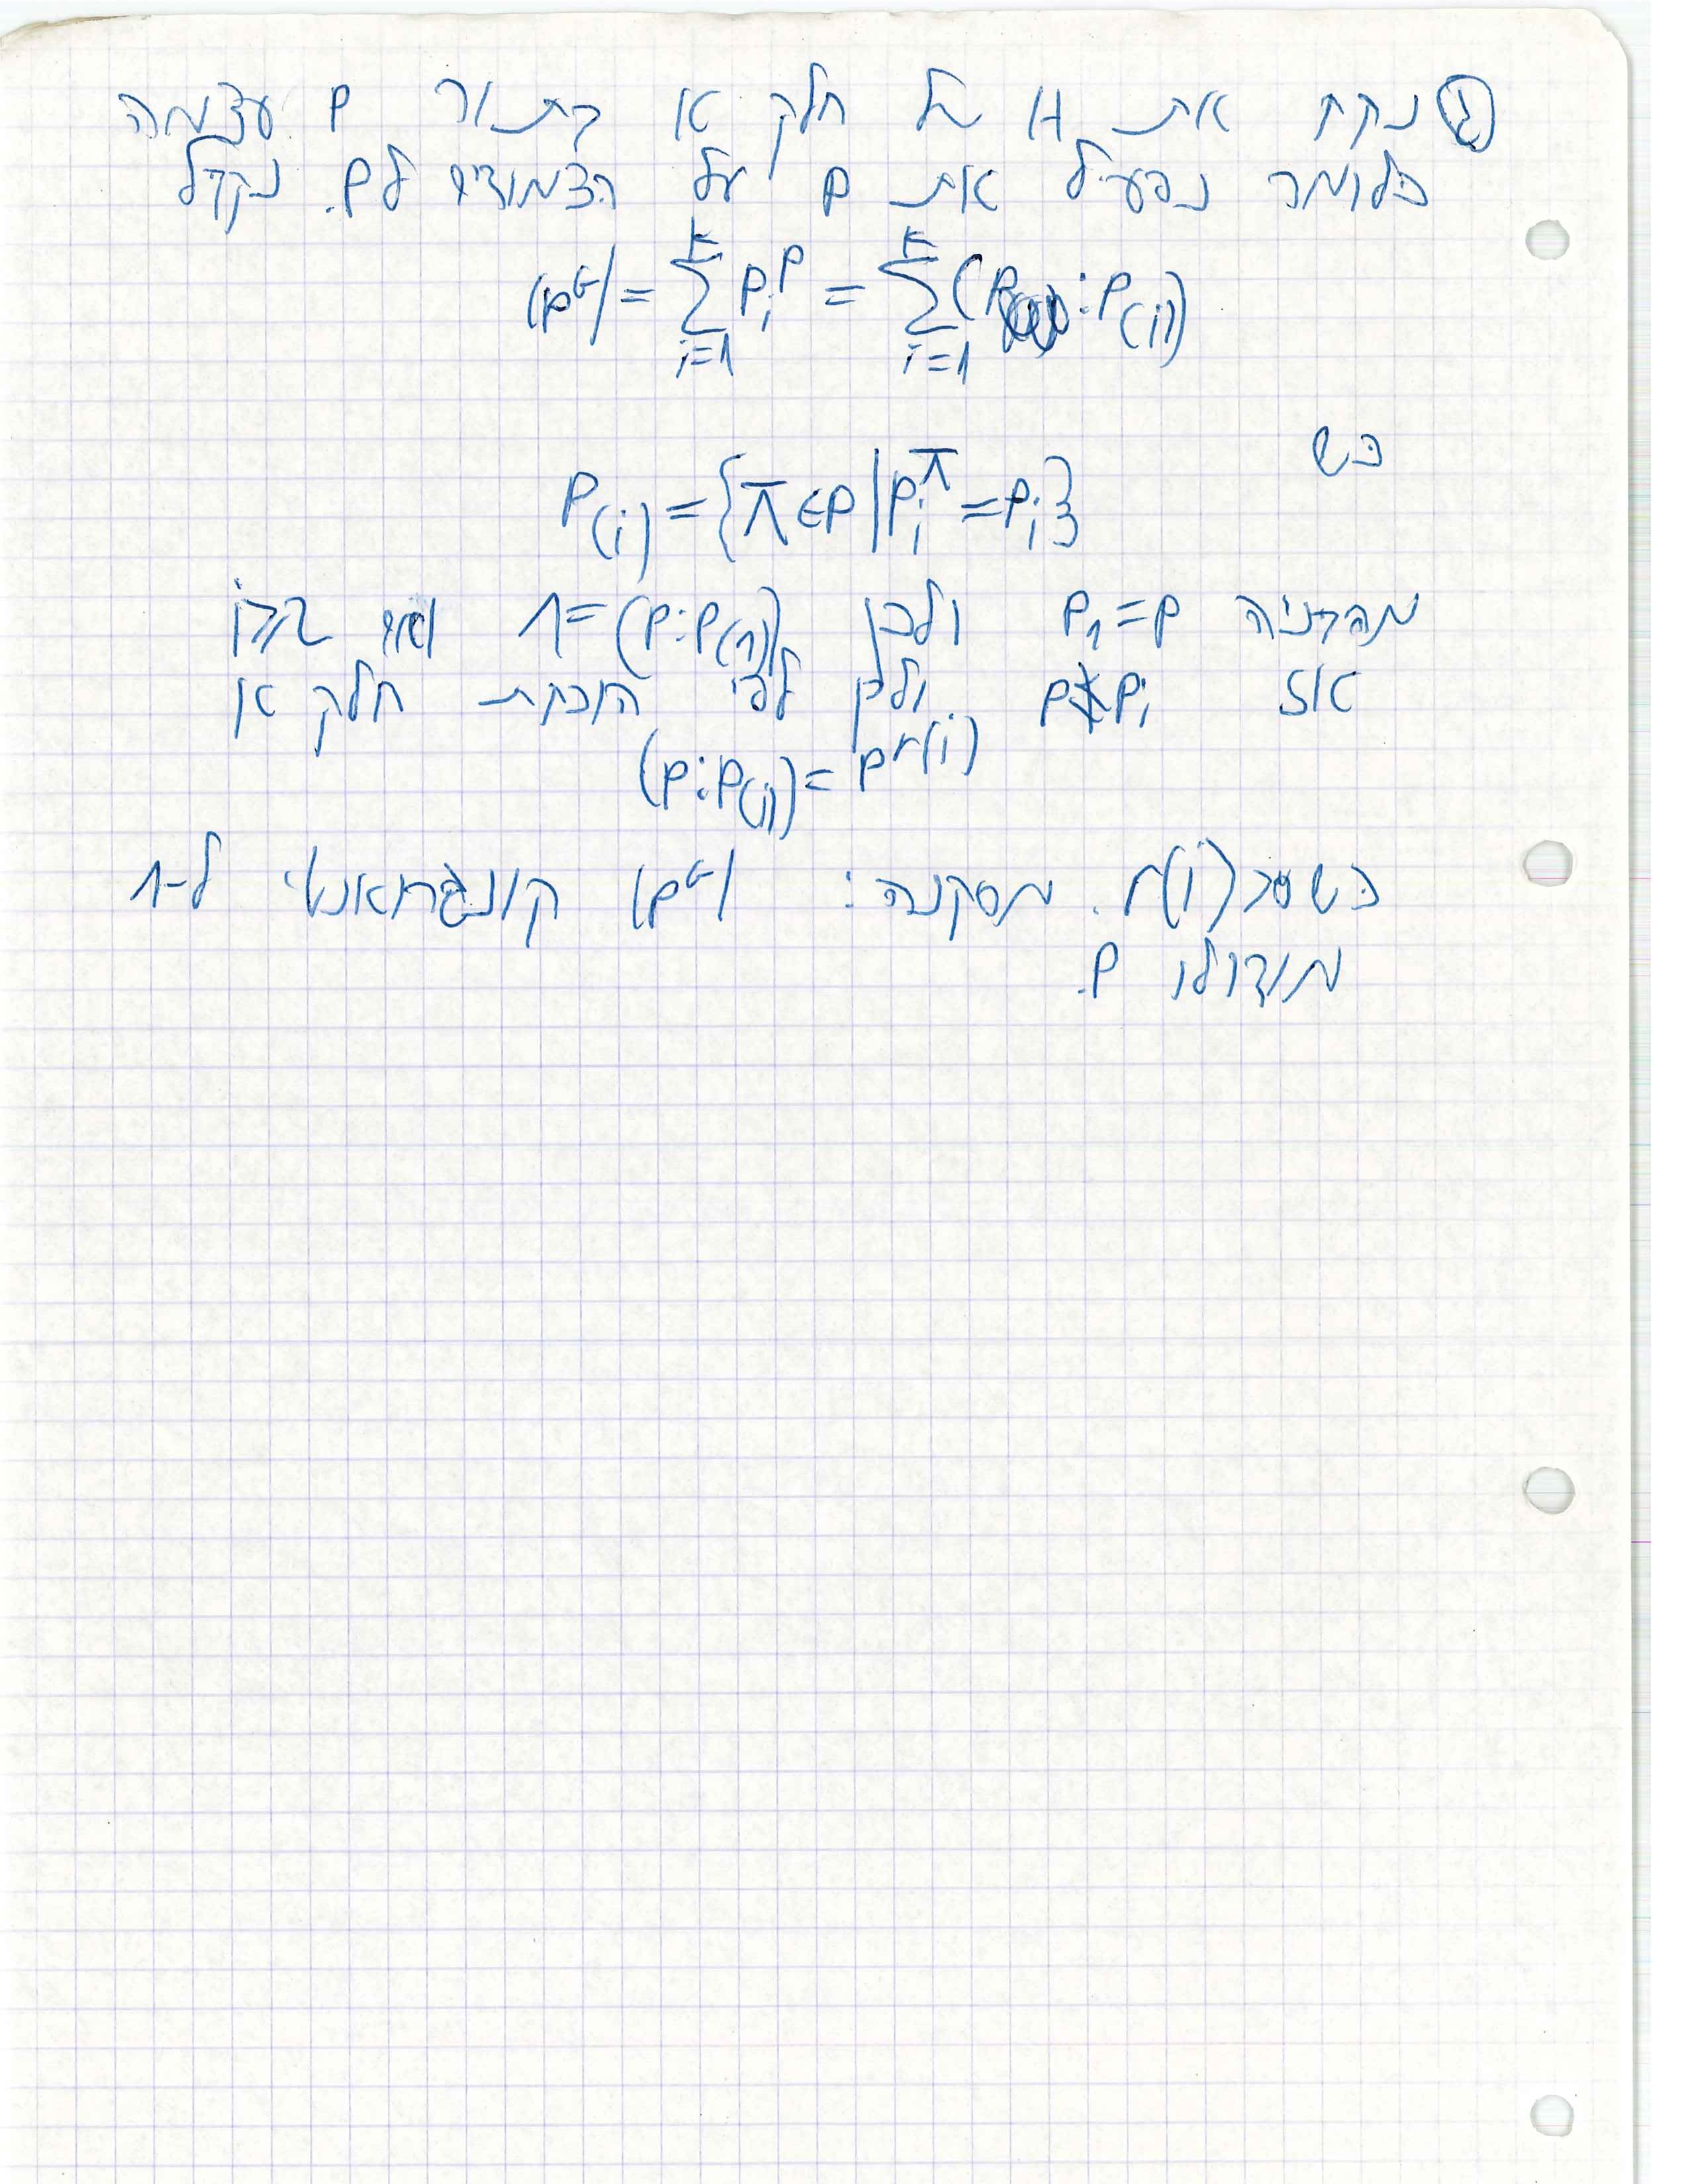 ג נקח את H של חלק א בתור P עצמה
כלומר נפעיל את P על הצמודים לP. נקבל
|P^G| = \sum_{i=1}^{k} P_i^P = \sum_{i=1}^{k} (P : P_{(i)})
כש
P_{(i)} = {π ∈ P | P_i^π = P_i}
מהבניה P_1 = P ולכן (P : P_{(1)}) = 1 ואם i>1
אז P ≠ P_i ולכן לפי הוכחת חלק א
(P : P_{(i)}) = p^{r(i)}
r(i)>0כש. מסקנה: |P^G| קונגרואנטי ל-1
מודולו p.